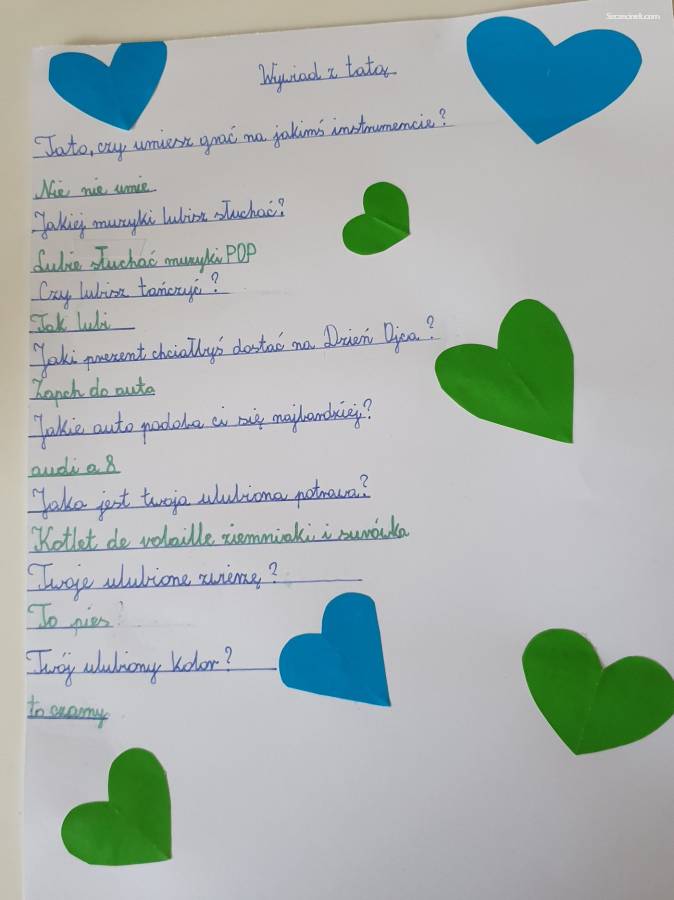 Szczecinek.com
Wywiad z tatą
Tato, czy umiesz grać na jakimś instrumencie?
Nie nie umie
Jakiej muzyki lubisz słuchać?
Lubie słuchać muzyki POP
Czy lubisz tańczyć?
Tak lubi
Jaki prezent chciałbyś dostać na Dzień Ojca?
Zapch do auta
Jakie auto podoba ci się najbardziej?
audi a 8
Jaka jest twoja ulubiona potrawa?
Kotlet de volaille ziemniaki i surówka
Twoje ulubione zwierzę?
To pies
Twój ulubiony kolor?
to czarny